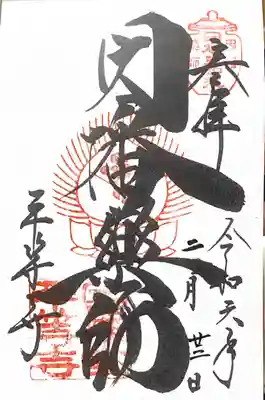 奉拝
令和六年
二月廿二日
因幡薬師
平等寺